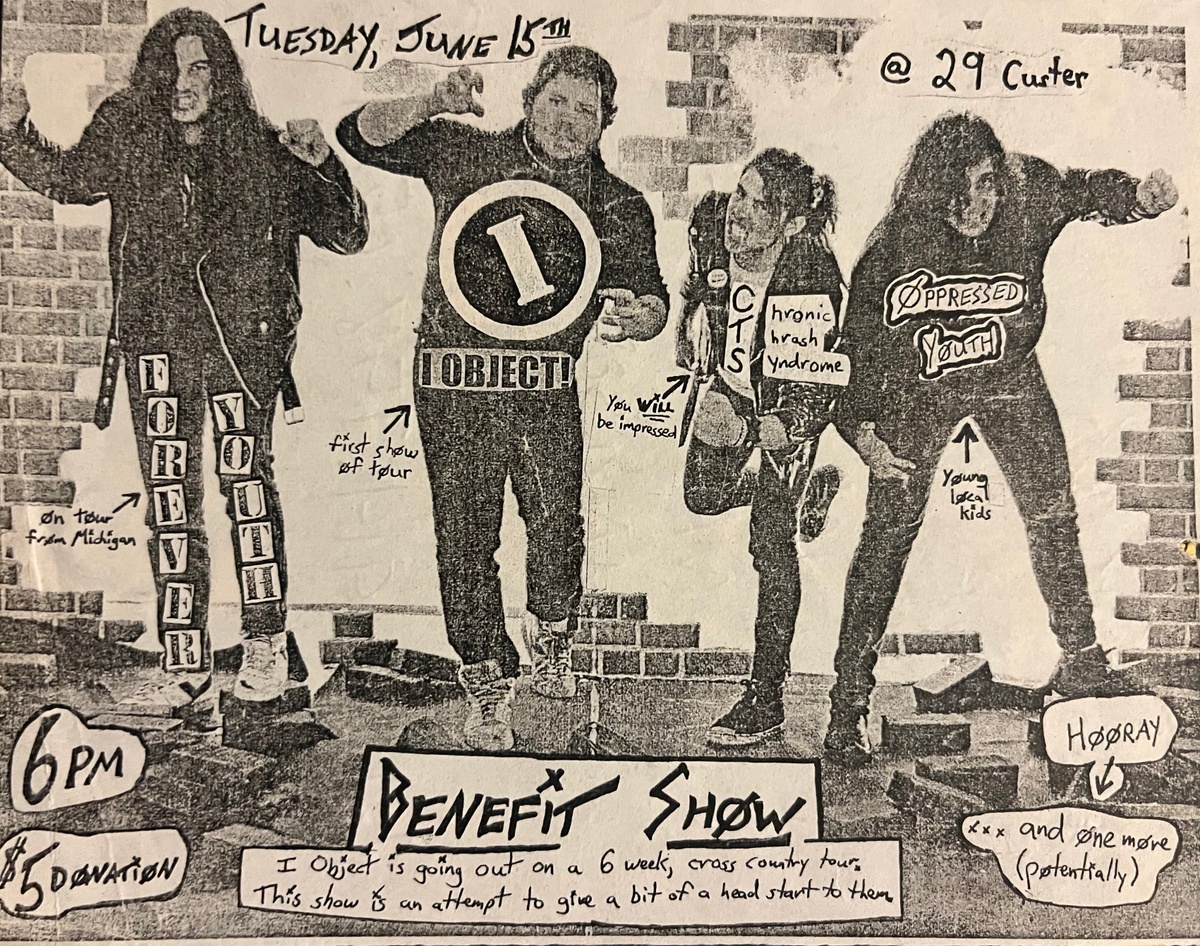 TUESDAY, JUNE 15TH
@ 29 Custer
I
I OBJECT!
CTS
hronic
hrash
yndrome
ØPPRESSED
YØUTH
FOREVER
YOUTH
first shøw
øf tøur
Yøu will
be impressed
Yøung
løcal
kids
øn tøur
frøm Michigan
6 PM
$5 DØNATIØN
BENEFIT SHØW
I Object is going out on a 6 week, cross country tour.
This show is an attempt to give a bit of a head start to them
HØØRAY
xxx and øne møre
(pøtentially)